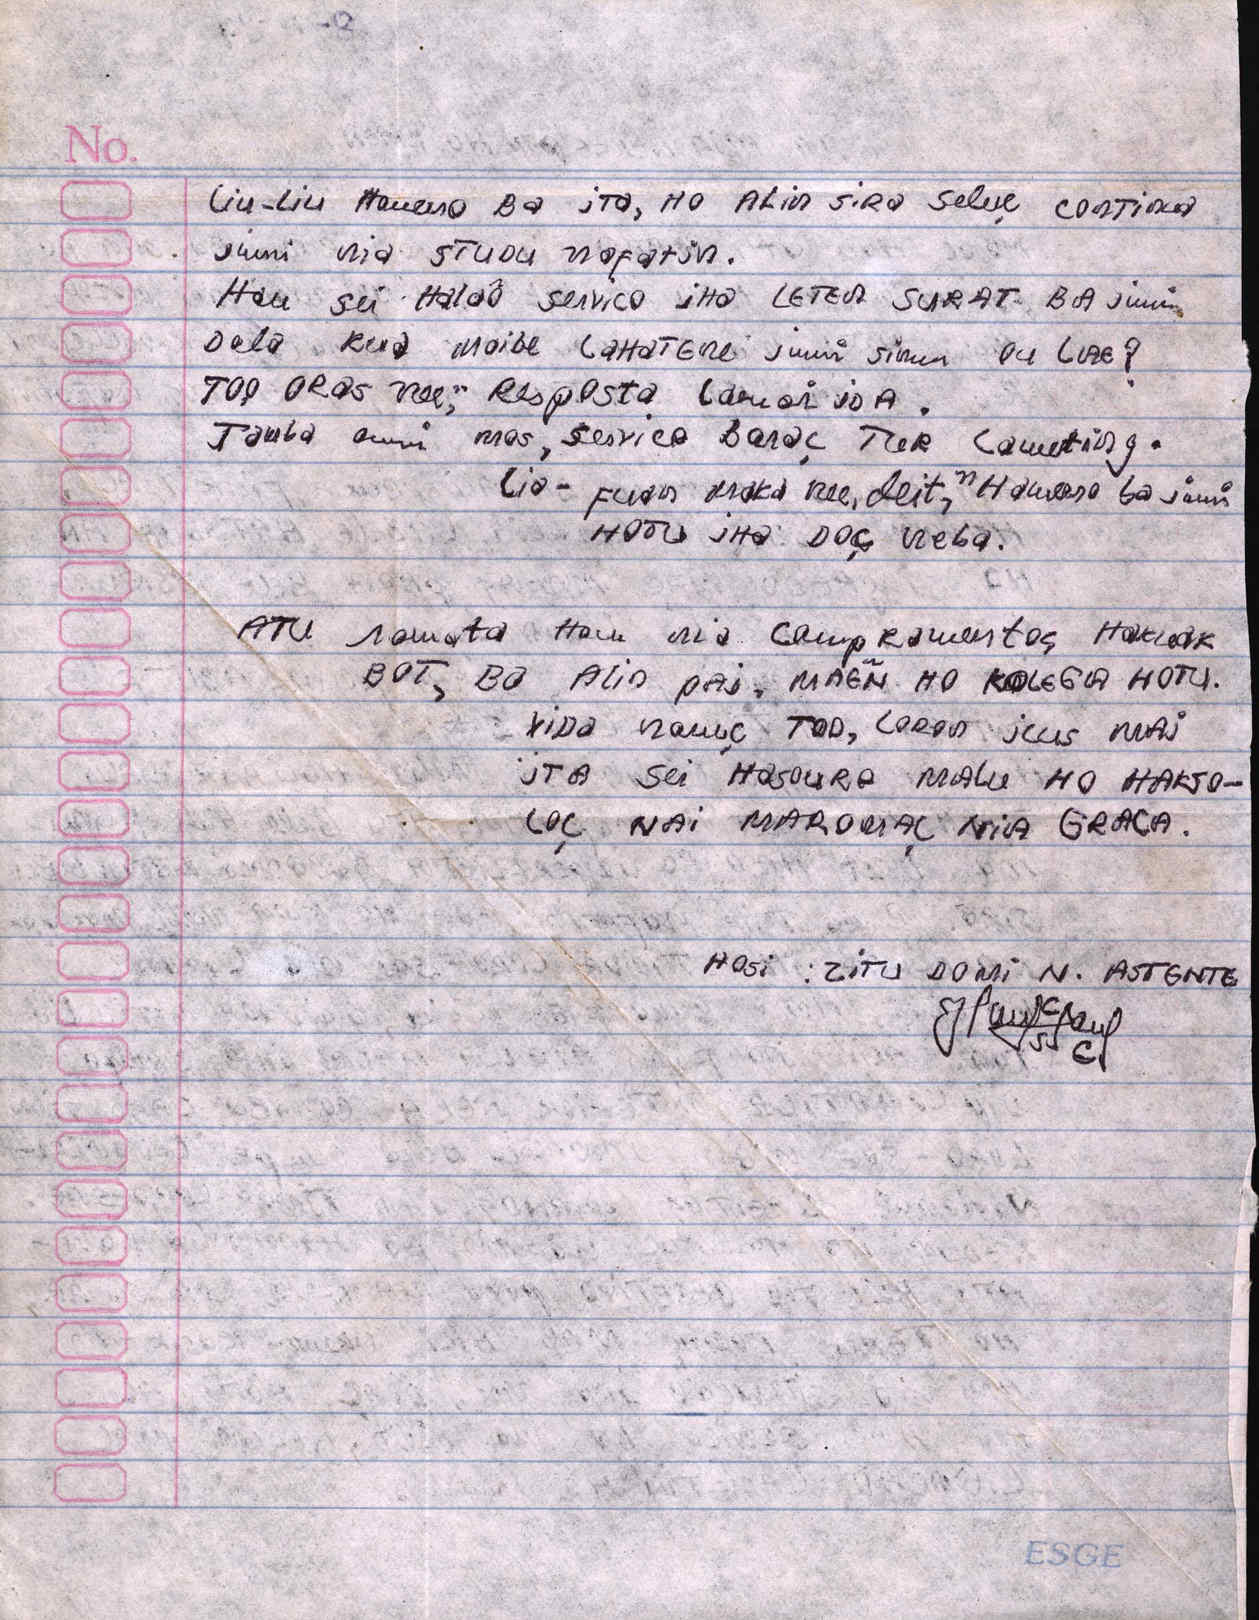 -2-
No.
Liu-Liu Hameno Ba ita, HO ALin SiRa Seluç Continua
imi nia STUDU nafatin.
Hau sei Halaõ Service iHa LETEN SURAT BA imi
Dala Rua Maibe LAHATENE imi Simu Ou LAE?
TOO ORAS nee, Resposta Lamai iDA.
Tamba ami mos, Service Baraç TUR Lameting.
Lia-fuan maka nee, deit, "Hameno ba imi
HOTU iHa DOÇ neba.
ATU ramata Hau nia CampRamentoç Hakuak
BOT, BA Alin pAi, MAEÑ HO KOLEGA HOTU.
ViDa naruç TOO, Loron icus MAi
iTA Sei Hasouru Malu HO HAKSO-
LOÇ NAi MAROMAÇ NiA GRACA.
Hosi : ZiTU DOMi N. ASTENTE
ESGE